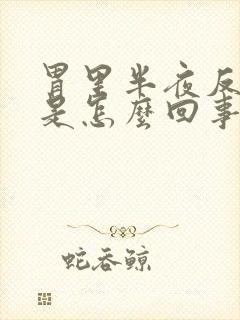 胃里半夜反
是怎麼回事
蛇吞鲸